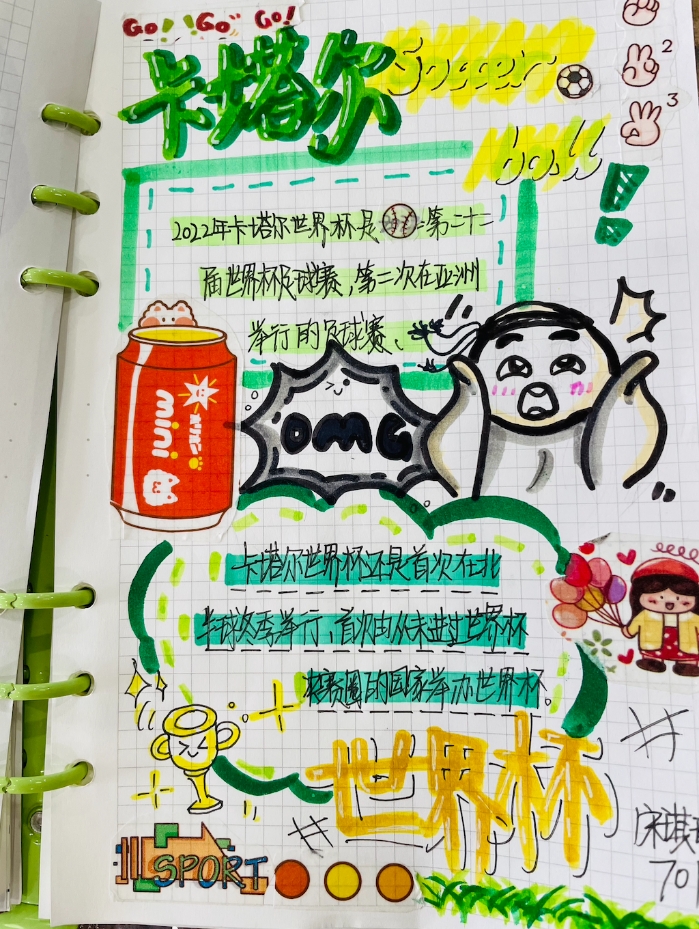 Go! Go" Go!
卡塔尔
Soccer
ball
2
3
2022年卡塔尔世界杯是第二十二
届世界杯足球赛，第二次在亚洲
举行的足球赛、
mini
OMG
卡塔尔世界杯还是首次在北
半球冬季举行，首次由从未进过世界杯
决赛圈的国家举办世界杯。
世界杯
SPORT
宋琪
701